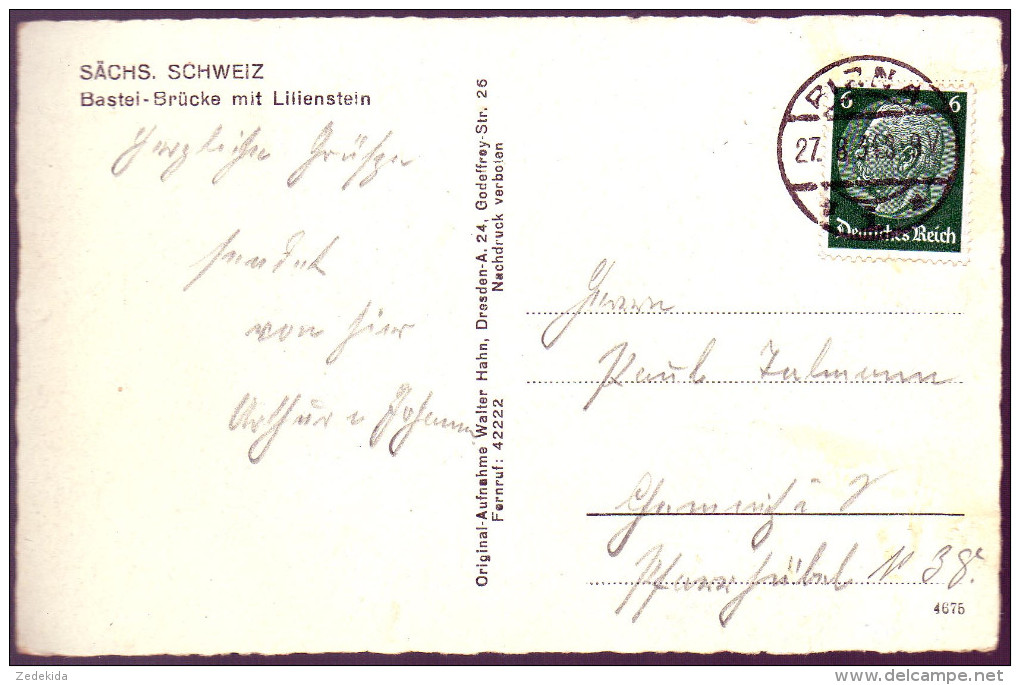 SÄCHS. SCHWEIZ
Bastei-Brücke mit Lilienstein
Herzliche Grüße
sendet
von hier
Arthur u Johanna
Original-Aufnahme Walter Hahn, Dresden-A. 24, Godeffroy-Str. 26
Fernruf: 42222 Nachdruck verboten
PIRNA
27. 8. 3
6 6
Deutsches Reich
Herrn
Paul
Chemnitz i S
Pfarrhübel N 38.
4675
Zedekida
www.delcampe.net